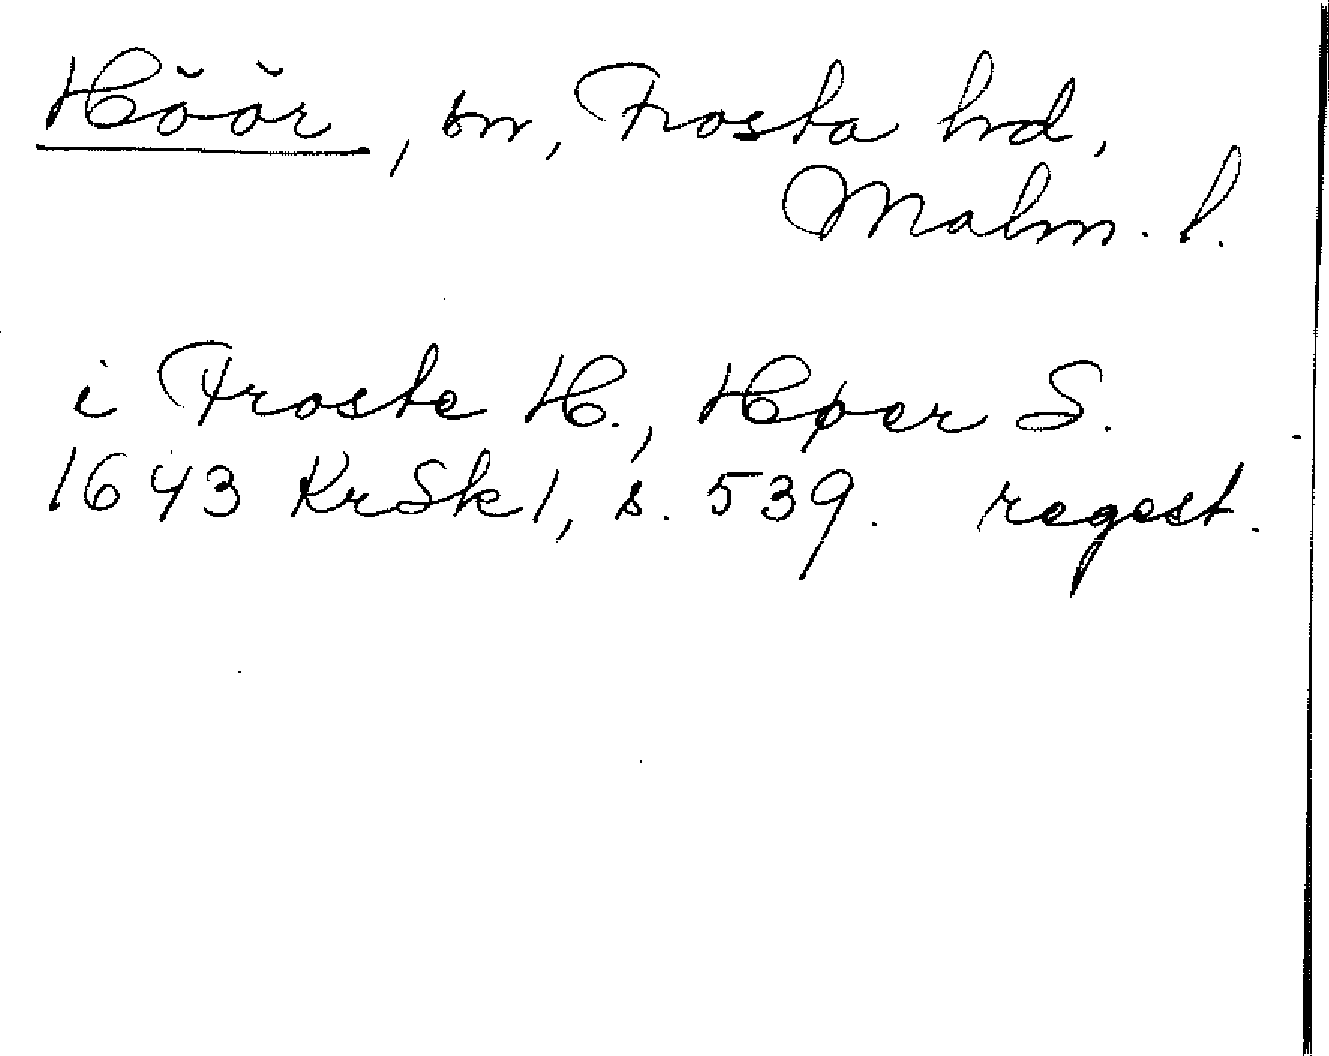 Höör, sn, Frosta hd,
Malm. l.
i Froste H., Høer S.
1643 KrSk1, s. 539. regest.